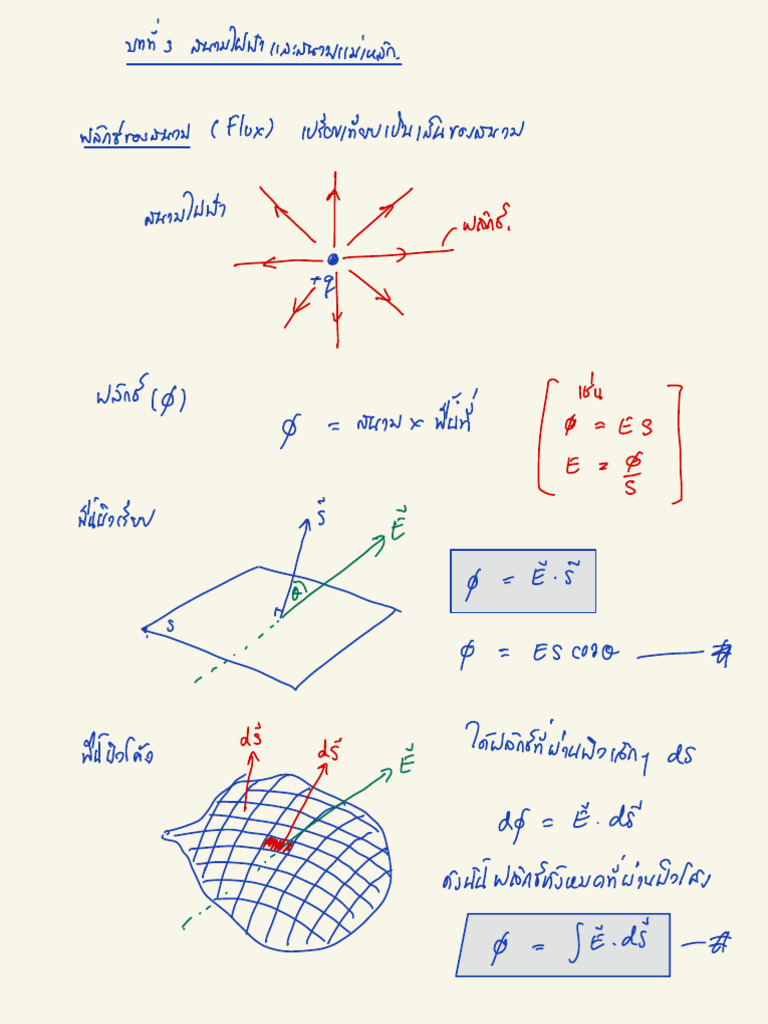 บทที่ 3 สนามไฟฟ้าและสนามแม่เหล็ก.
ฟลักซ์ของสนาม (Flux) เปรียบเทียบเป็นเส้นของสนาม
สนามไฟฟ้า
ฟลักซ์.
+q
ฟลักซ์ (φ)
φ = สนาม × พื้นที่
เช่น
φ = ES
E = φ/S
พื้นผิวเรียบ
S⃗
E⃗
θ
S
φ = E⃗ · S⃗
φ = ES cosθ —— #
พื้นผิวโค้ง
dS⃗
dS⃗
E⃗
ได้ฟลักซ์ที่ผ่านผิวเล็กๆ dS
dφ = E⃗ · dS⃗
ดังนั้นฟลักซ์ทั้งหมดที่ผ่านผิวโค้ง
φ = ∫ E⃗ · dS⃗ — #